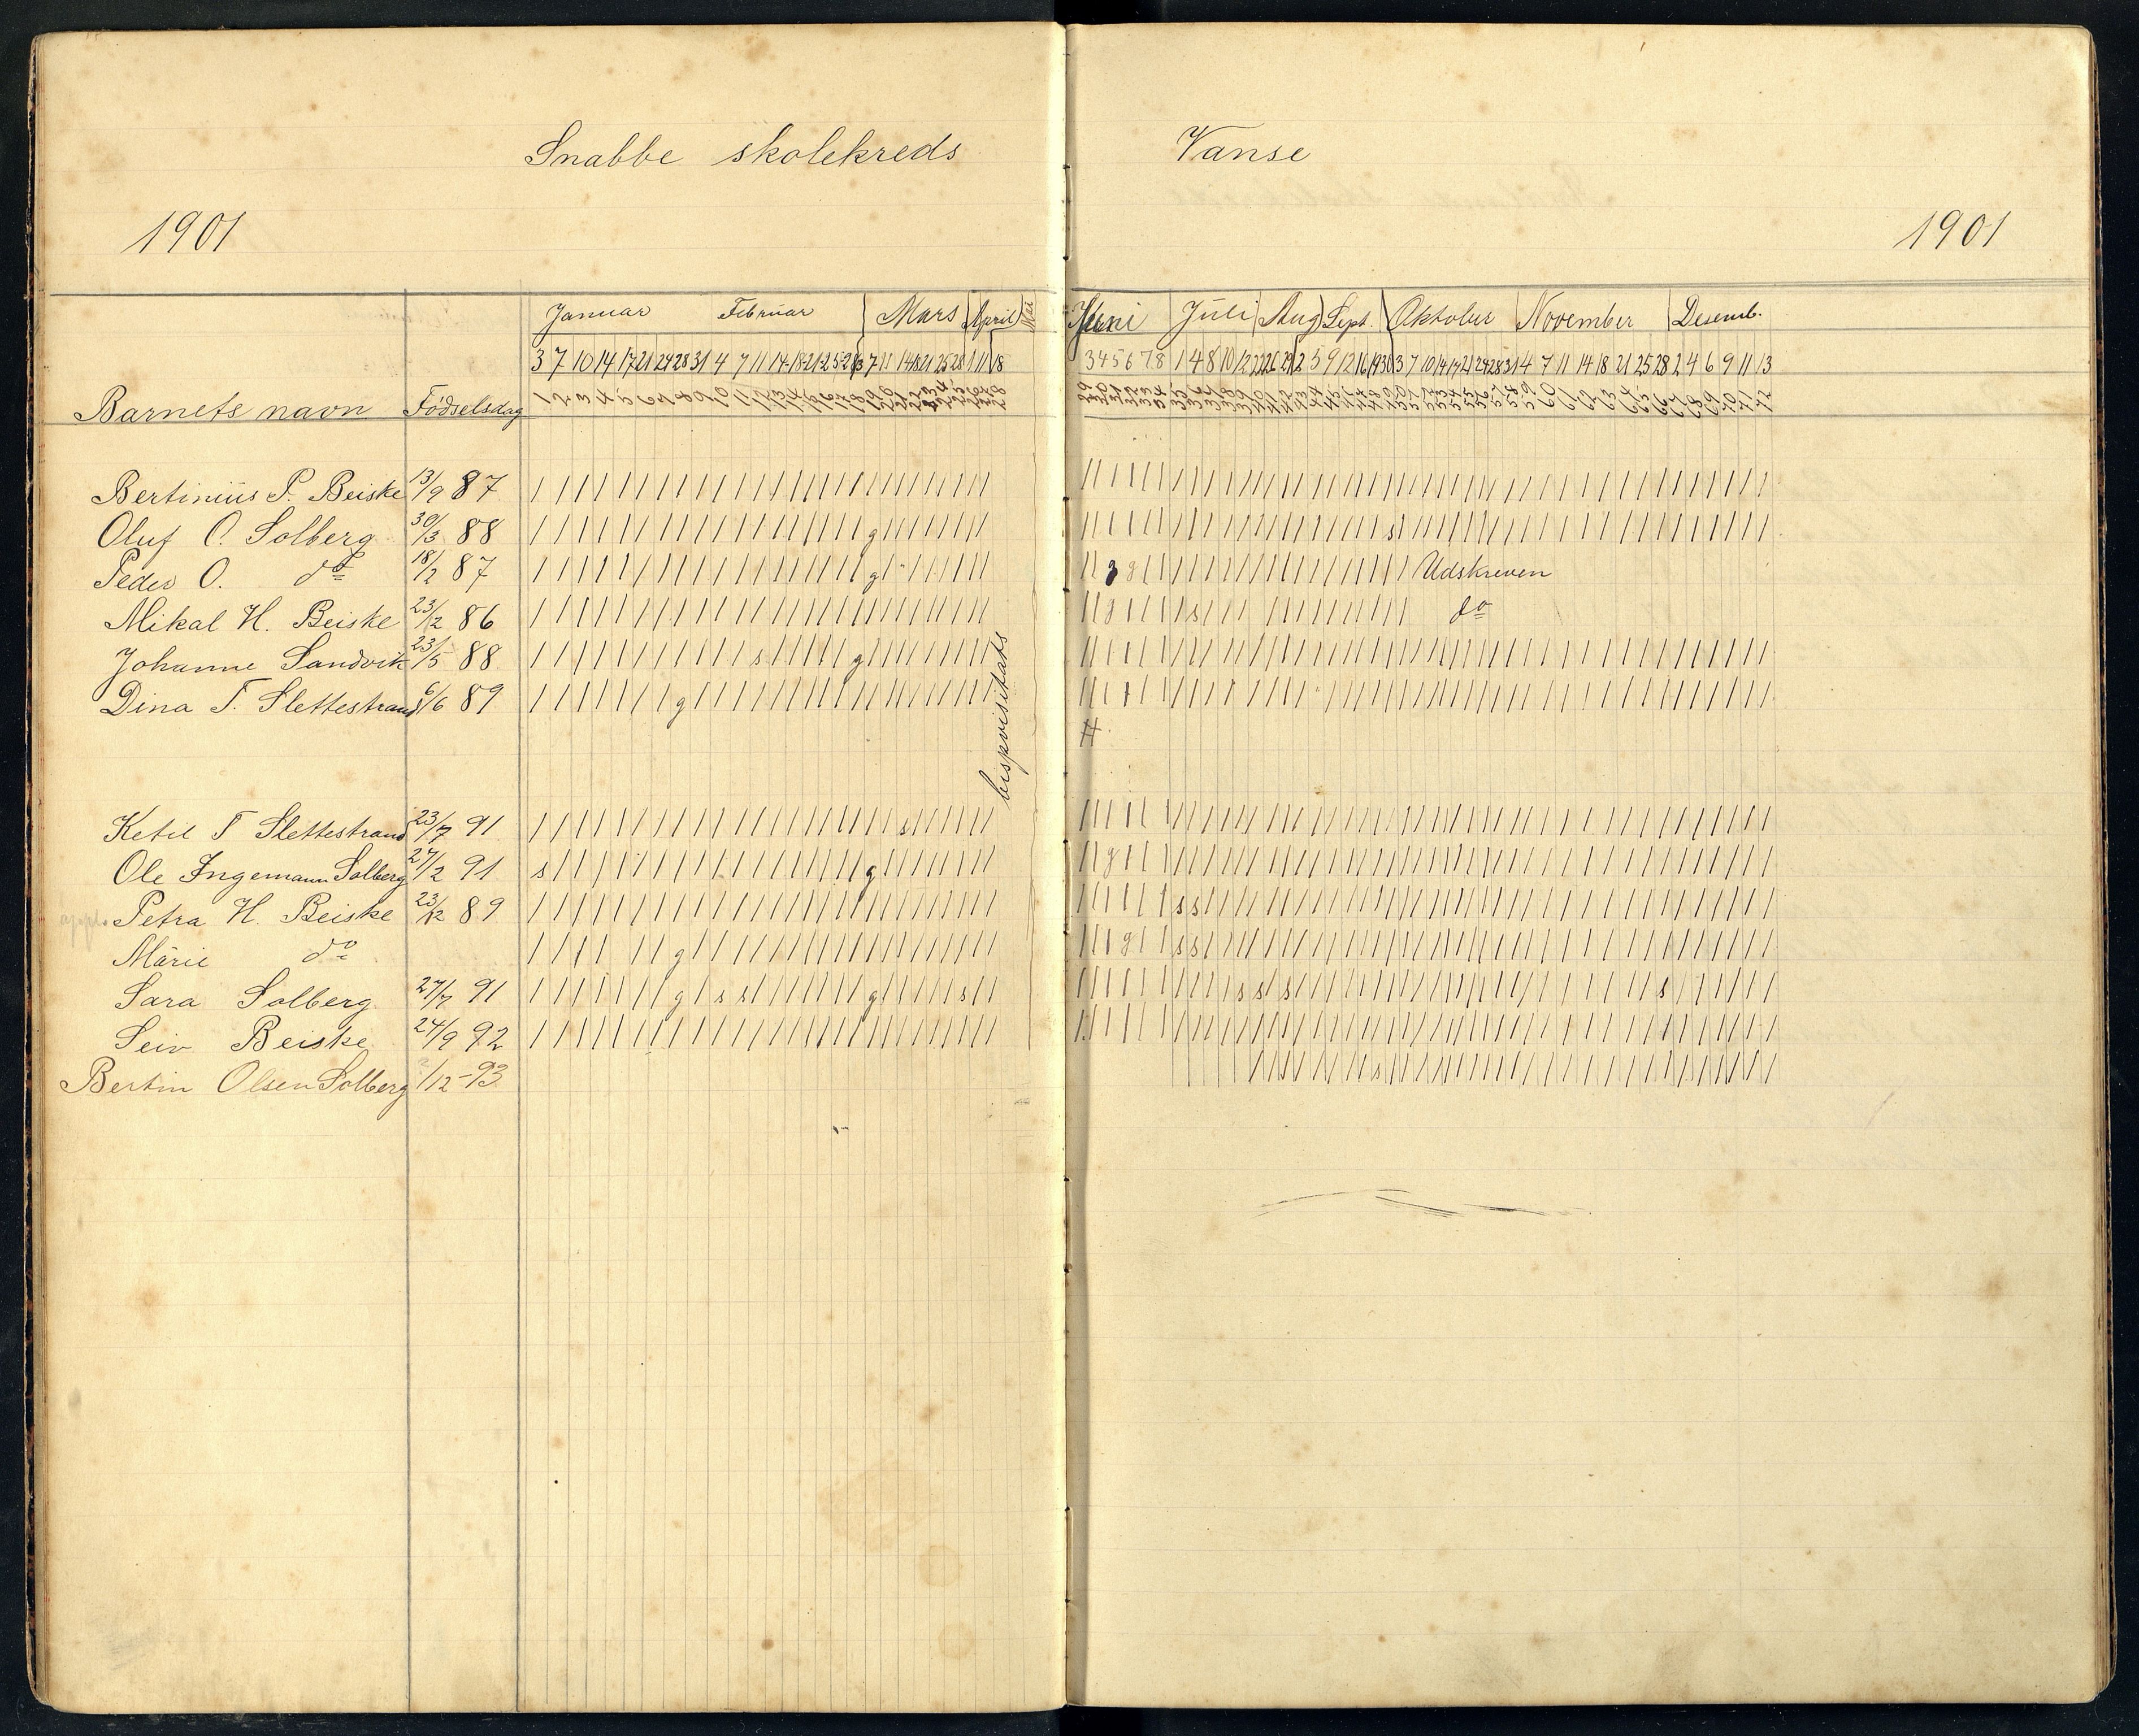 Snabbe skolekreds Vanse
1901 1901
Januar Februar Mars April Mai Juni Juli Aug Sept. Oktober November Desemb.
3 7 10 14 17 21 24 28 31 4 7 11 14 18 21 25 28 3 7 11 14 18 21 25 28 1 11 18 3 4 5 6 7 8 1 4 8 10 12 22 26 29 2 5 9 12 16 19 30 3 7 10 14 17 21 24 28 31 4 7 11 14 18 21 25 28 2 4 6 9 11 13
Barnets navn Fødselsdag
Bertinius P. Beiske 13/9 87
Oluf O. Solberg 30/3 88
Peder O. do 18/2 87 Udskreven
Mikal H. Beiske 23/12 86 do
Johanne Sandvik 23/5 88
Dina T. Slettestrand 6/6 89
bispvisitats
Ketil T Slettestrand 23/7 91
Ole Ingemann Solberg 27/2 91
Petra H. Beiske 23/12 89
Marie do
Sara Solberg 27/7 91
Seiv Beiske 24/9 92
Bertin Olsen Solberg 1/12 - 93